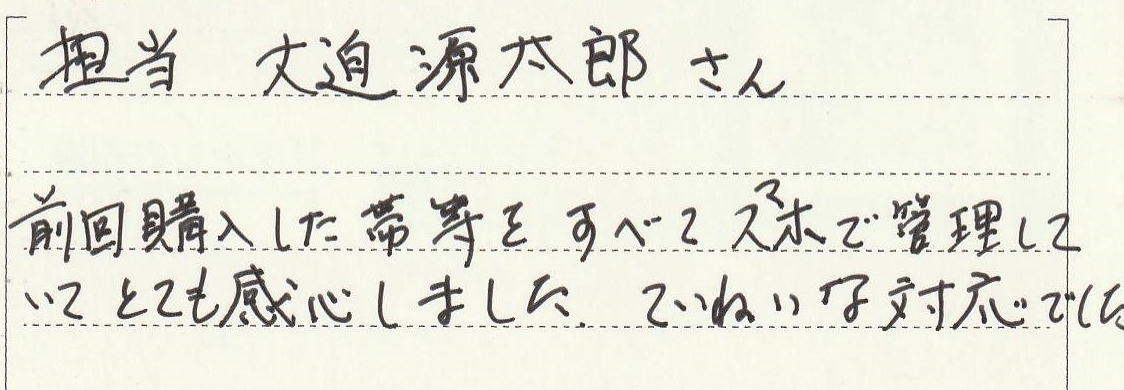 担当 大迫源太郎 さん
前回購入した帯等を すべて スマホで管理して
いて とても感心しました。ていねいな対応でした